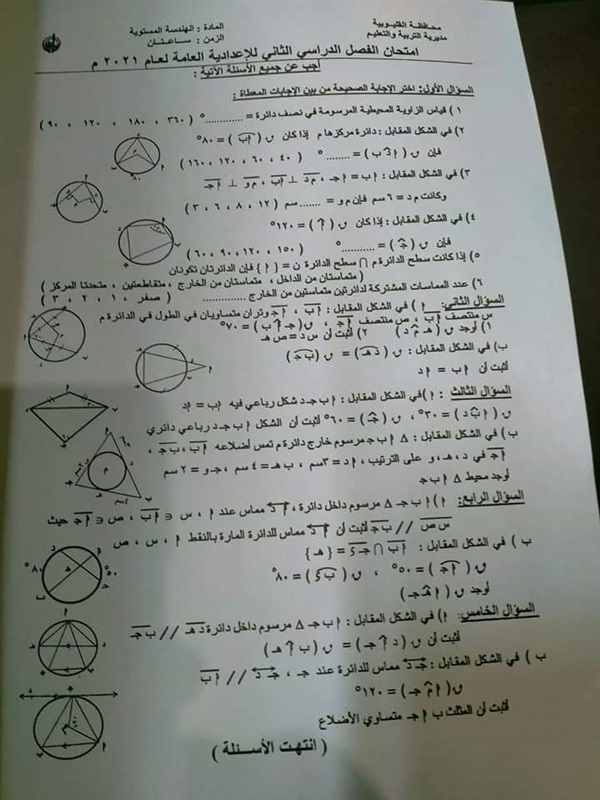 محافظة القليوبية
مديرية التربية والتعليم
المادة : الهندسة المستوية
الزمن : ساعتان
امتحان الفصل الدراسي الثاني للإعدادية العامة لعام ٢٠٢١ م
أجب عن جميع الأسئلة الآتية :
السؤال الأول: اختر الإجابة الصحيحة من بين الإجابات المعطاة :
١ ) قياس الزاوية المحيطية المرسومة في نصف دائرة = ............° ( ٣٦٠ ، ١٨٠ ، ١٢٠ ، ٩٠ )
٢) في الشكل المقابل : دائرة مركزها م إذا كان ق ( اب ) = ٨٠°
فإن ق ( ا جـ ب ) = ........° ( ٤٠ ، ٦٠ ، ١٢٠ ، ١٦٠ )
٣) في الشكل المقابل : اب = اجـ ، م د ⊥ اب ، م و ⊥ اجـ
وكانت م د = ٦ سم فإن م و = ...... سم ( ١٢ ، ٨ ، ٦ ، ٣ )
٤) في الشكل المقابل : إذا كان ق ( ا ) = ١٢٠°
فإن ق ( جـ ) = ...........° ( ١٥٠ ، ١٢٠ ، ٩٠ ، ٦٠ )
٥) إذا كانت سطح الدائرة م ∩ سطح الدائرة ن = { ا } فإن الدائرتان تكونان
( متماستان من الداخل ، متماستان من الخارج ، متقاطعتين ، متحدتا المركز )
٦) عدد المماسات المشتركة لدائرتين متماستين من الخارج .............. ( صفر ، ١ ، ٢ ، ٣ )
السؤال الثاني: ا ) في الشكل المقابل : اب ، اجـ وتران متساويان في الطول في الدائرة م
س منتصف اب ، ص منتصف اجـ ، ق( جـ ا ب ) = ٧٠°
١) أوجد ق ( هـ م د ) ٢) أثبت أن س د = ص هـ
ب) في الشكل المقابل : ق ( د هـ ) = ق ( ب جـ )
أثبت أن ا ب = ا د
السؤال الثالث : ا) في الشكل المقابل : ا ب جـ د شكل رباعي فيه ا ب = ا د
ق ( ا ب د ) = ٣٠° ، ق ( جـ ) = ٦٠° أثبت أن الشكل ا ب جـ د رباعي دائري
ب) في الشكل المقابل : Δ ا ب جـ مرسوم خارج دائرة م تمس أضلاعه اب ، ب جـ ،
اجـ في د ، هـ ، و على الترتيب ، ا د = ٣سم ، ب هـ = ٤ سم ، جـ و = ٢ سم
أوجد محيط Δ ا ب جـ
السؤال الرابع: ا) ا ب جـ Δ مرسوم داخل دائرة ، ا د مماس عند ا ، س ∈ اب ، ص ∈ اجـ حيث
س ص // ب جـ أثبت أن ا د مماس للدائرة المارة بالنقط ا ، س ، ص
ب ) في الشكل المقابل : اب ∩ جـ د = { هـ }
ق ( اجـ ) = ٥٠° ، ق ( ب د ) = ٨٠°
أوجد ق ( ا هـ جـ )
السؤال الخامس: ا) في الشكل المقابل : ا ب جـ Δ مرسوم داخل دائرة د هـ // ب جـ
أثبت أن ق ( د ا جـ ) = ق ( ب ا هـ )
ب ) في الشكل المقابل : جـ د مماس للدائرة عند جـ ، جـ د // اب
ق ( ا م جـ ) = ١٢٠°
أثبت أن المثلث ب ا جـ متساوي الأضلاع
( انتهت الأسئلة )